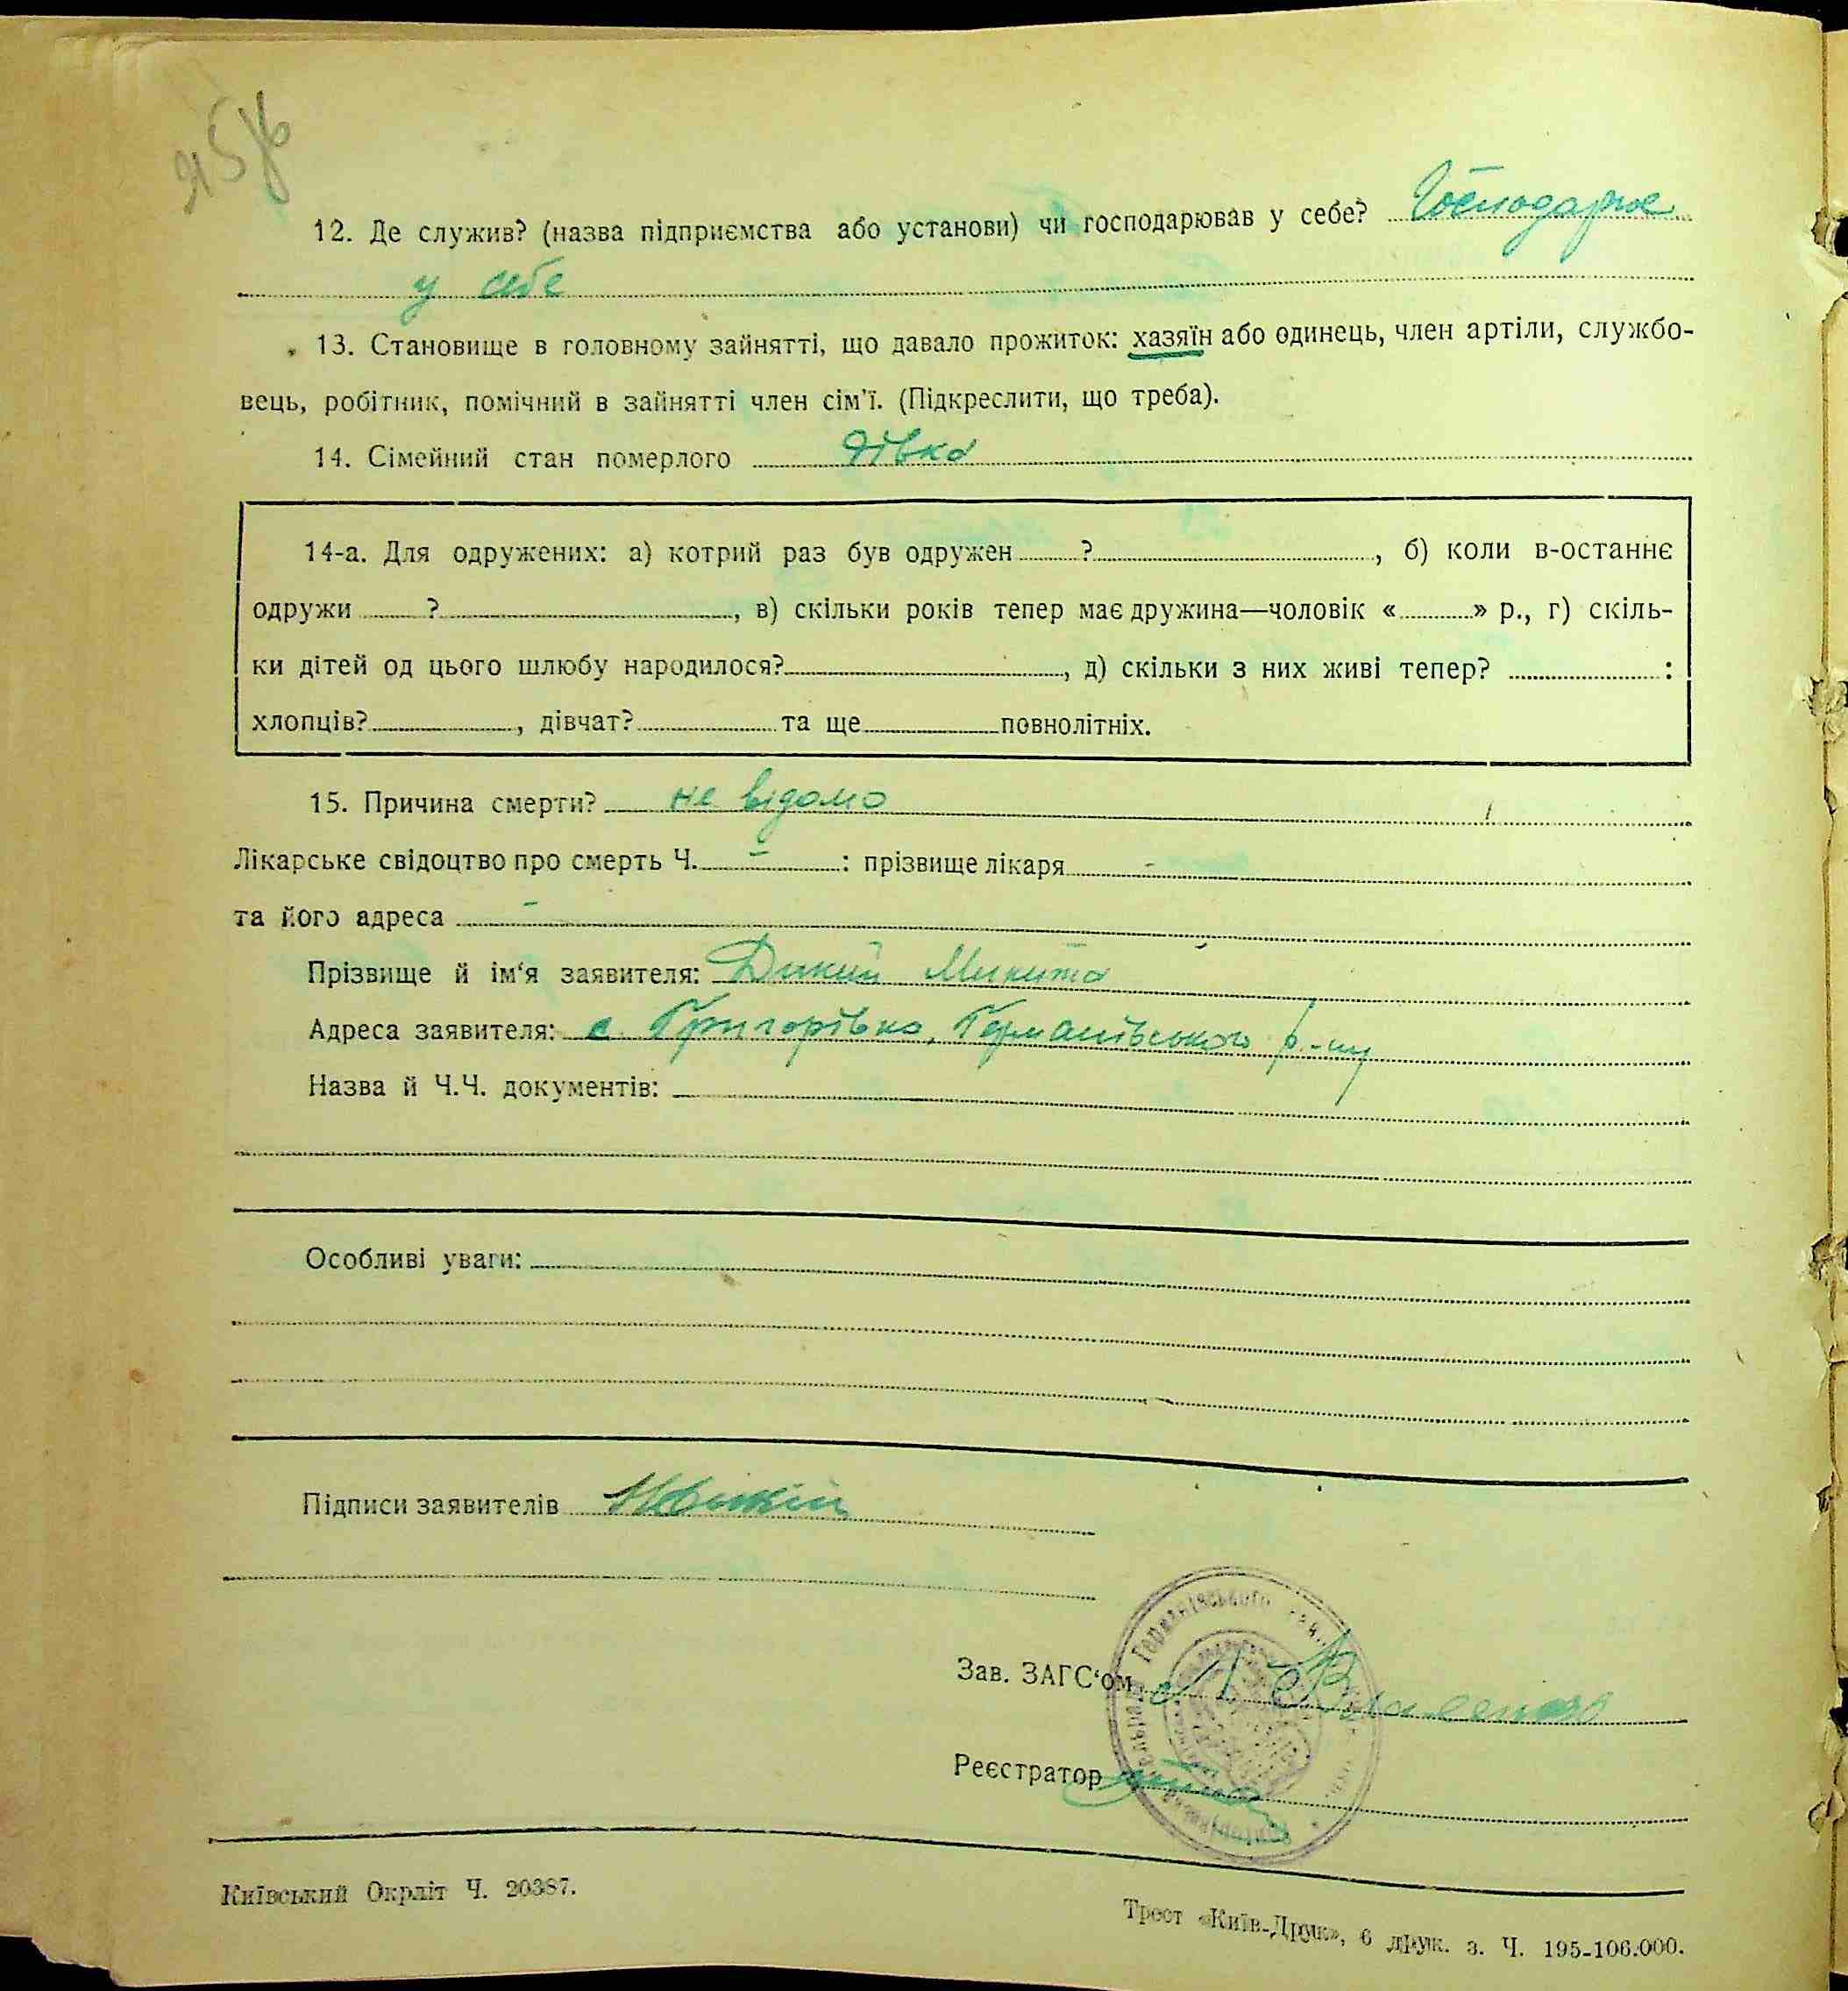 12. Де служив? (назва підприємства або установи) чи господарював у себе? Господарює
у себе
13. Становище в головному зайнятті, що давало прожиток: хазяїн або одинець, член артіли, службо-
вець, робітник, помічний в зайнятті член сім'ї. (Підкреслити, що треба).
14. Сімейний стан померлого дівка
14-а. Для одружених: а) котрий раз був одружен ?, б) коли в-останнє
одружи ?, в) скільки років тепер має дружина—чоловік « » р., г) скіль-
ки дітей од цього шлюбу народилося?, д) скільки з них живі тепер? :
хлопців?, дівчат? та ще повнолітніх.
15. Причина смерти? не відомо
Лікарське свідоцтво про смерть Ч. - : прізвище лікаря -
та його адреса -
Прізвище й ім'я заявителя: Дикий Микита
Адреса заявителя: с. Григорівка, Германівського р.-ну
Назва й Ч.Ч. документів:
Особливі уваги:
Підписи заявителів
Зав. ЗАГС'ом
Германівського
Реєстратор
Київський Окрліт Ч. 20387.
Трест «Київ-Друк», 6 друк. з. Ч. 195-106.000.